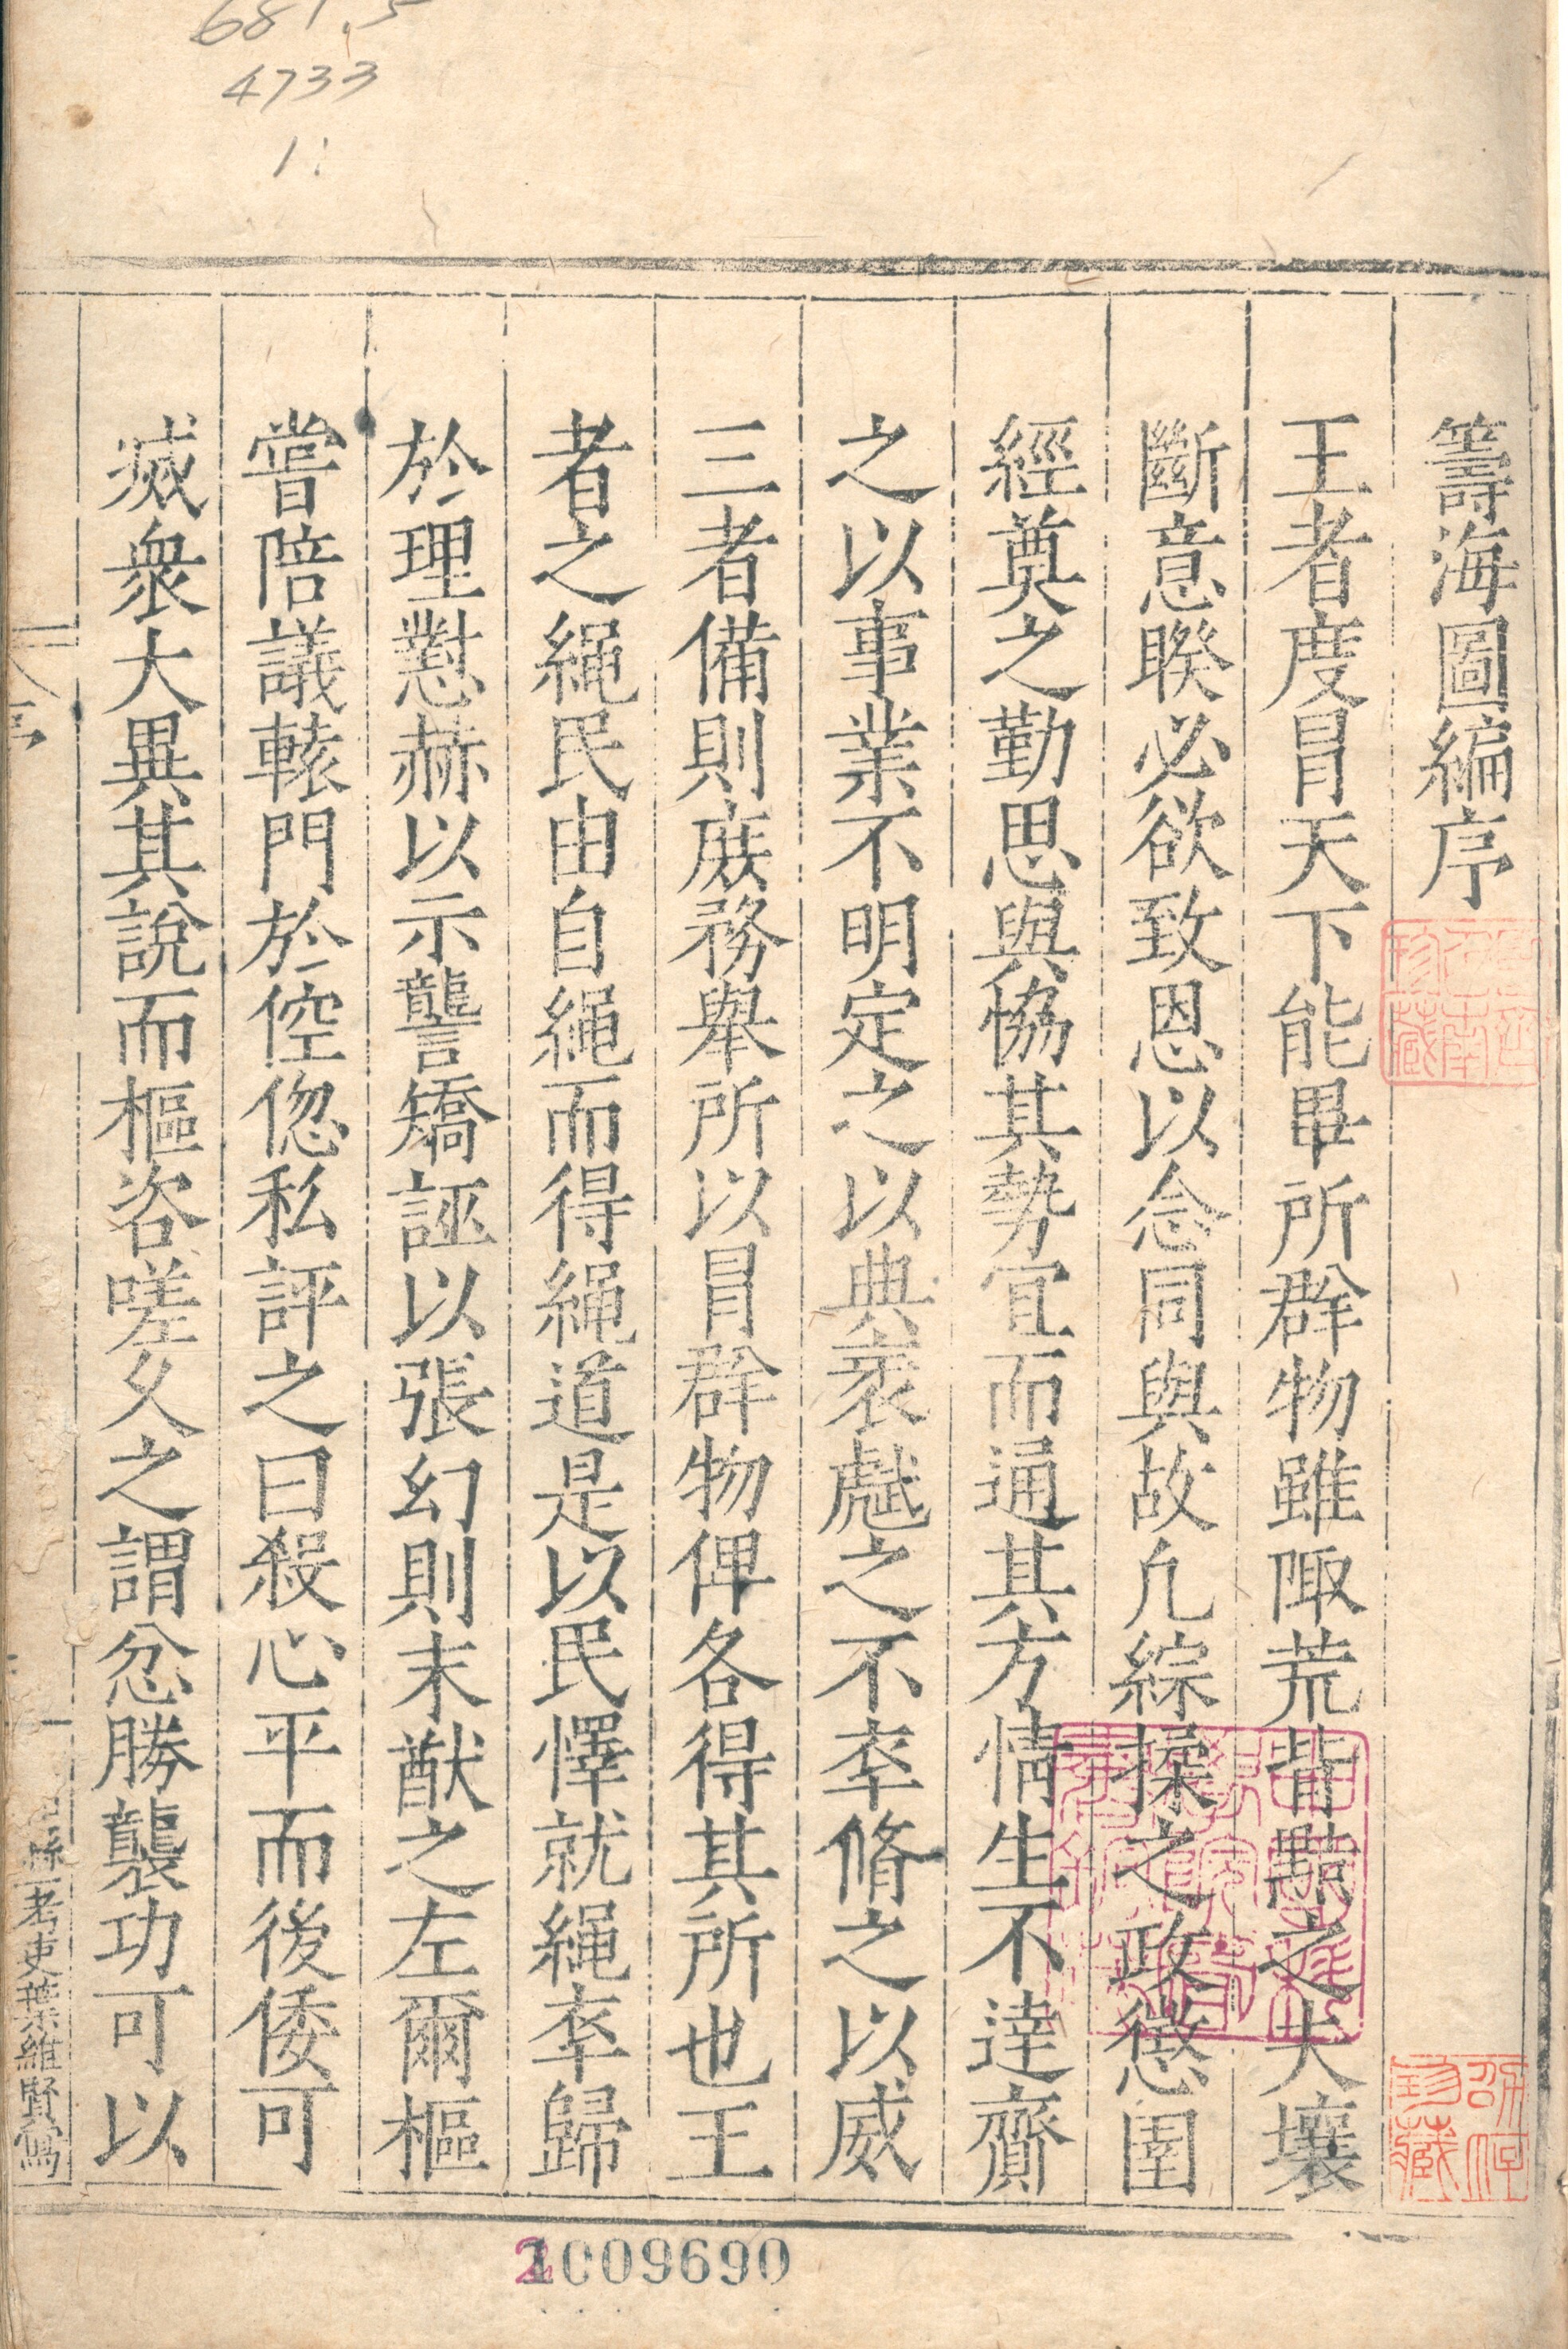 681.5
4733
1:
籌海圖編序
王者度冒天下能畢所群物雖陬荒昔黠之大壤
斷意睽必欲致恩以念同與故凢綜揉之政懲圉
經奠之勤思與恊其勢宜而通其方情生不逹齎
之以事業不明定之以典衷虣之不率脩之以威
三者備則庻務舉所以冒群物俾各得其所也王
者之繩民由自繩而得繩道是以民懌就繩率歸
於理懟赫以示讋矯誣以張幻則末猷之左爾樞
嘗陪議轅門於倥偬私評之曰殺心平而後倭可
烕衆大異其說而樞咨嗟久之謂忿勝襲功可以
序
縣考吏葉維賢寫
珍藏
珍藏
21009690